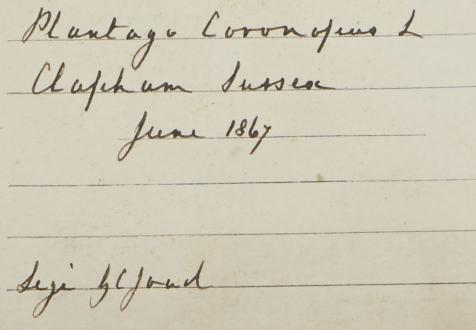 Plantago Coronopus L
Clapham Sussex
June 1867
Legi G C Joad